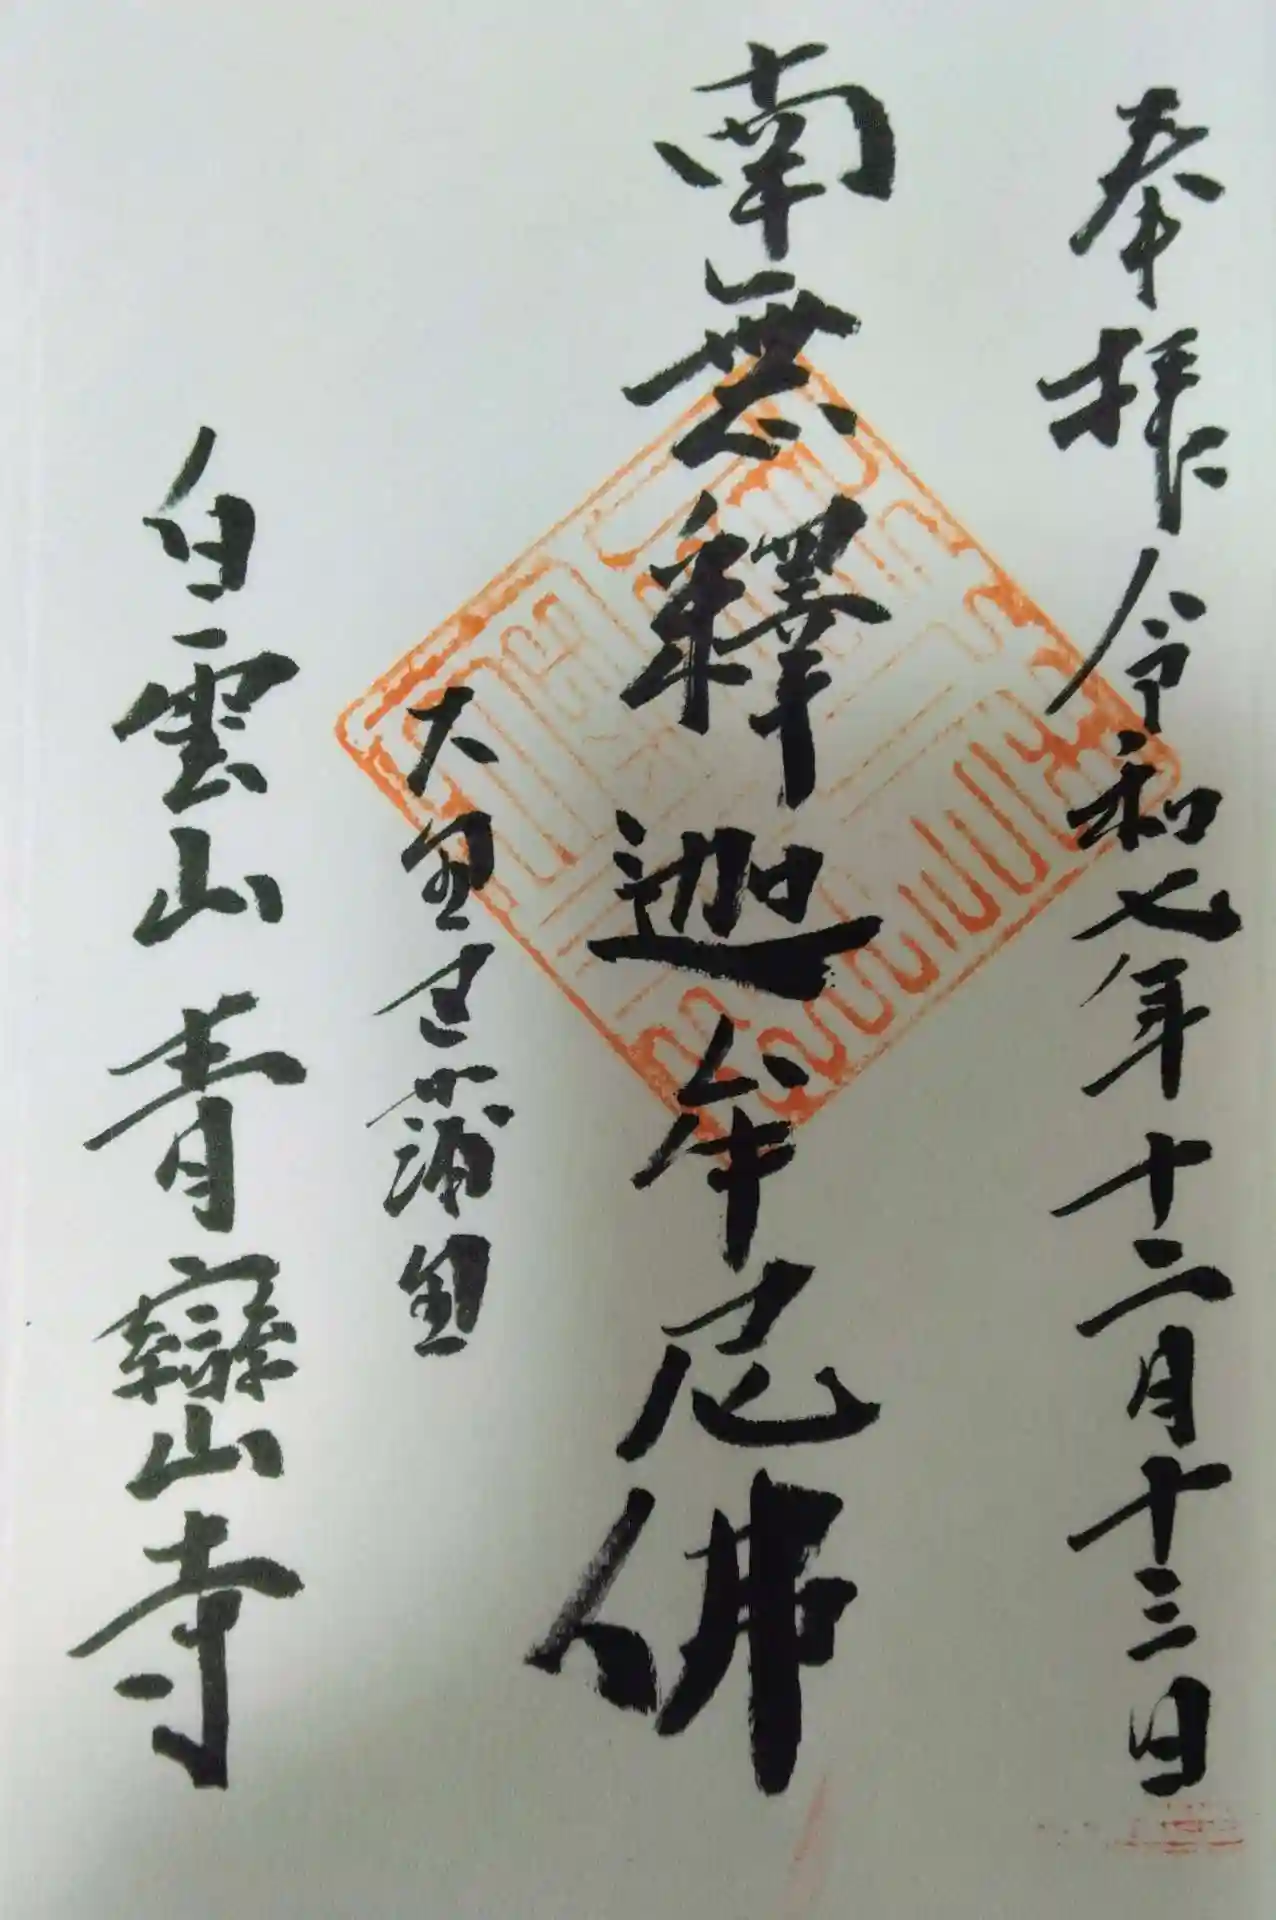 奉拝 令和七年十二月十三日
南無釋迦牟尼佛
大 蒲
白雲山 青巒寺